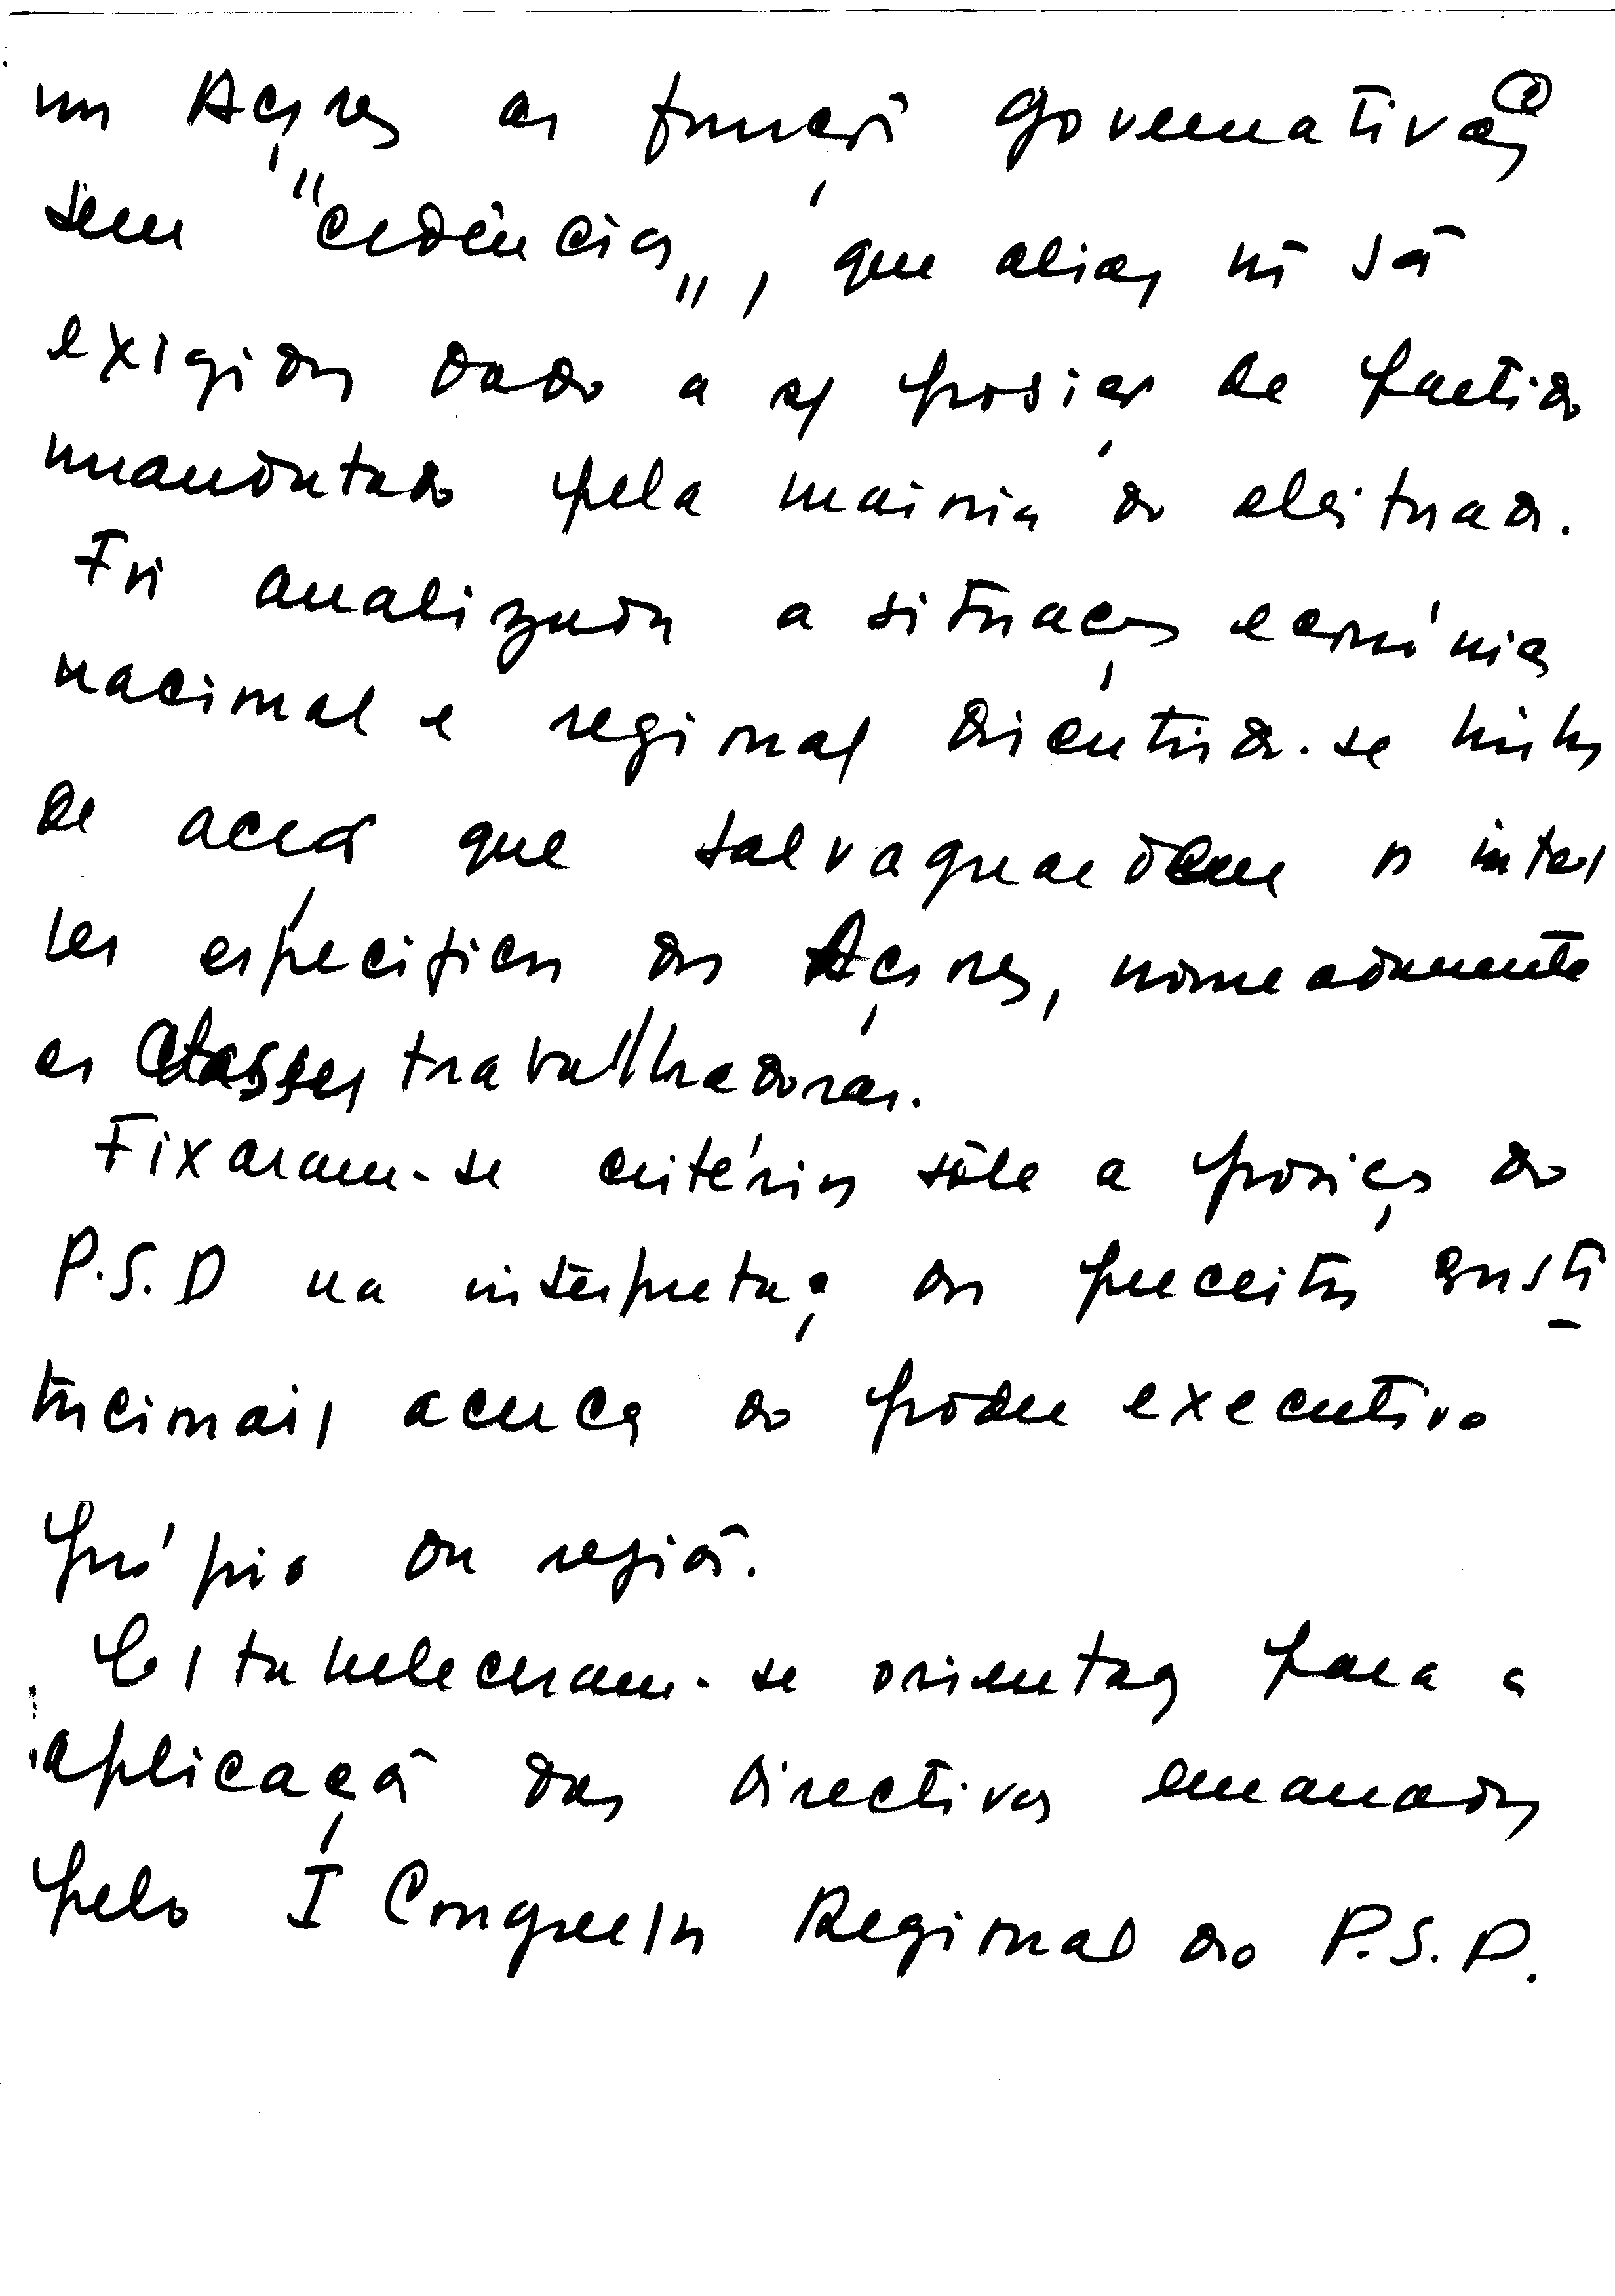 nos Açores as funções governativas
sem "cedências", que aliás não são
exigidas dado a sua posição de partido
mandatado pela maioria do eleitorado.
Foi analizada a situação económica
nacional e regional discutindo-se linhas
de acção que salvaguardem os interes
ses específicos dos Açores, nomeadamente
as Classes trabalhadoras.
Fixaram-se critérios sôbre a posição do
P.S.D na interpretação dos preceitos consti
tucionais acerca do poder executivo
próprio da região.
Estabeleceram-se orientação para a
aplicação das directivas emanadas
pelo I Congresso Regional do P.S.D.